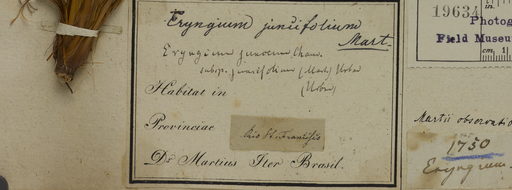 Eryngium juncifolium
Mart.
Eryngium junceum Cham.
subsp. juncifolium (Mart.) Urban
(Urban)
Habitat in
Provinciae
Rio St. Francisco
Dr. Martius Iter Brasil.
19634
Photog
Field Museum
cm 1
Martii observatio
1750
Eryngium